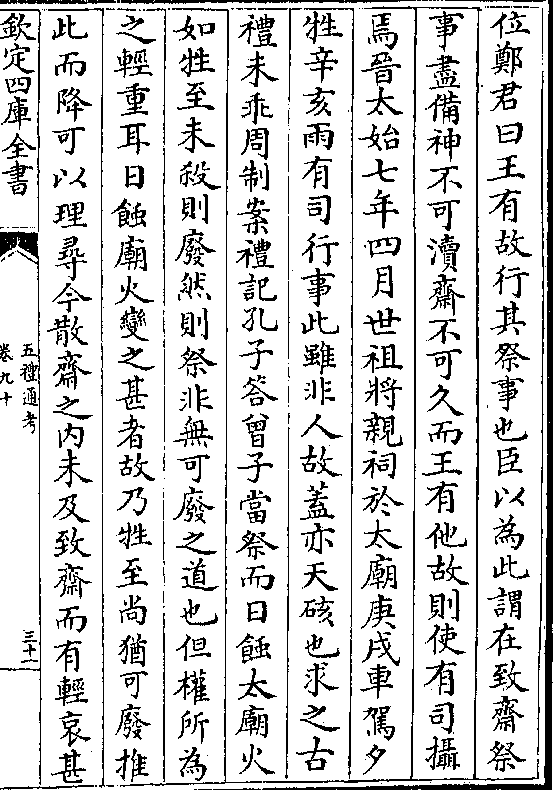 位鄭君曰王有故行其祭事也臣以為此謂在致齋祭
事盡備神不可瀆齋不可久而王有他故則使有司攝
焉晉太始七年四月世祖將親祠於太廟庚戌車駕夕
牲辛亥雨有司行事此雖非人故蓋亦天硋也求之古
禮未乖周制案禮記孔子答曾子當祭而日蝕太廟火
如牲至未殺則廢然則祭非無可廢之道也但權所為
之輕重耳日蝕廟火變之甚者故乃牲至尚猶可廢推
此而降可以理尋今散齋之内未及致齋而有輕哀甚
欽定四庫全書
五禮通考
卷九十
三十一